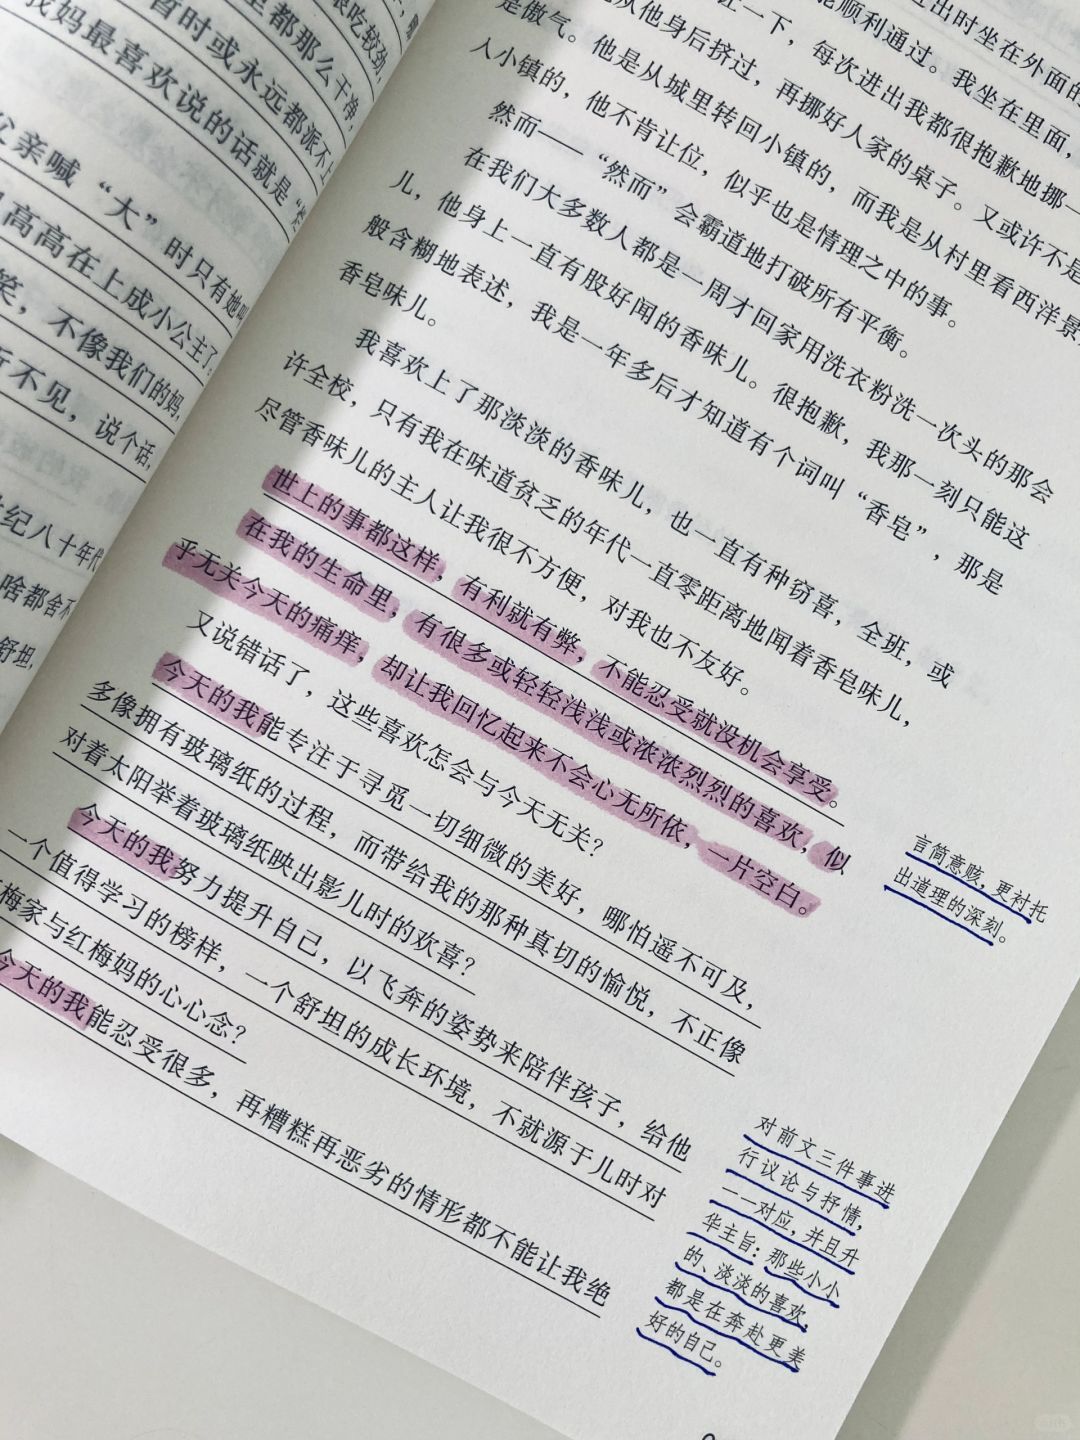 很吃较劲，
里都那么干净，
暂时或永远都派不上
我妈最喜欢说的话就是
父亲喊“大”时只有她叫
高高在上成小公主了，
笑，不像我们的妈，
不见，说个话，
纪八十年代
啥都舍不
舒坦，
出时坐在外面的
能顺利通过。我坐在里面，
一下，每次进出我都很抱歉地挪一
从他身后挤过，再挪好人家的桌子。又或许不是
是傲气。他是从城里转回小镇的，而我是从村里看西洋景
人小镇的，他不肯让位，似乎也是情理之中的事。
然而——“然而”会霸道地打破所有平衡。
在我们大多数人都是一周才回家用洗衣粉洗一次头的那会
儿，他身上一直有股好闻的香味儿。很抱歉，我那一刻只能这
般含糊地表述，我是一年多后才知道有个词叫“香皂”，那是
香皂味儿。
我喜欢上了那淡淡的香味儿，也一直有种窃喜，全班，或
许全校，只有我在味道贫乏的年代一直零距离地闻着香皂味儿，
尽管香味儿的主人让我很不方便，对我也不友好。
世上的事都这样，有利就有弊，不能忍受就没机会享受。
在我的生命里，有很多或轻轻浅浅或浓浓烈烈的喜欢，似
乎无关今天的痛痒，却让我回忆起来不会心无所依，一片空白。
又说错话了，这些喜欢怎会与今天无关？
今天的我能专注于寻觅一切细微的美好，哪怕遥不可及，
多像拥有玻璃纸的过程，而带给我的那种真切的愉悦，不正像
对着太阳举着玻璃纸映出影儿时的欢喜？
今天的我努力提升自己，以飞奔的姿势来陪伴孩子，给他
一个值得学习的榜样，一个舒坦的成长环境，不就源于儿时对
梅家与红梅妈的心心念？
今天的我能忍受很多，再糟糕再恶劣的情形都不能让我绝
言简意赅，更衬托
出道理的深刻。
对前文三件事进
行议论与抒情，
一一对应，并且升
华主旨：那些小小
的、淡淡的喜欢，
都是在奔赴更美
好的自己。